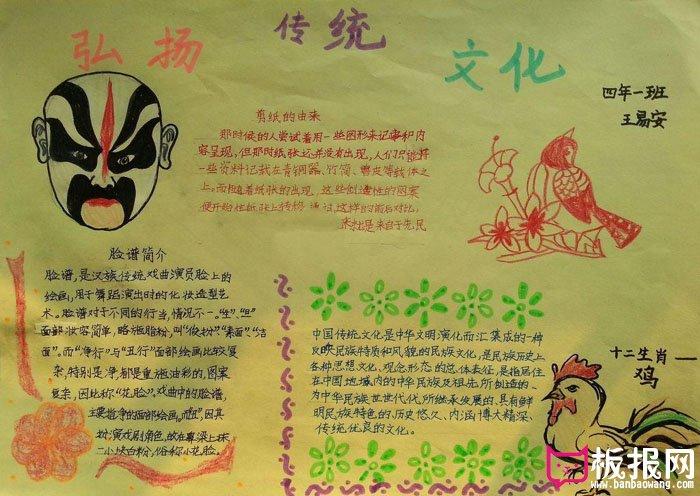 弘扬
传统
文化
四年一班
王易安
剪纸的由来
那时候的人尝试着用一些图形来记事和内
容呈现,但那时纸张还并没有出现,人们只能将
一些资料记载在青铜器、竹简、兽皮等载体之
上。而随着纸张的出现,这些创造性的图案
便开始往纸张上转移
来自于先民
脸谱简介
脸谱,是汉族传统戏曲演员脸上的
绘画,用于舞蹈演出时的化妆造型艺
术。脸谱对于不同的行当,情况不一。“生”、“旦”
面部妆容简单,略施脂粉,叫“俊扮”、“素面”、“洁
面”。而“净行”与“丑行”面部绘画比较复
杂,特别是净,都是重施油彩的,图案
复杂,因此称“花脸”。戏曲中的脸谱,
主要指净的面部绘画。而“丑”,因其
扮演戏剧角色,故在鼻梁上抹
一小块白粉,俗称小花脸。
中国传统文化是中华文明演化而汇集成的一种
反映民族特质和风貌的民族文化,是民族历史上
各种思想文化、观念形态的总体表征,是指居住
在中国地域内的中华民族及祖先所创造的、
为中华民族世世代代所继承发展的,具有鲜
明民族特色的、历史悠久、内涵博大精深、
传统优良的文化。
十二生肖——
鸡
板报网
www.banbaowang.com